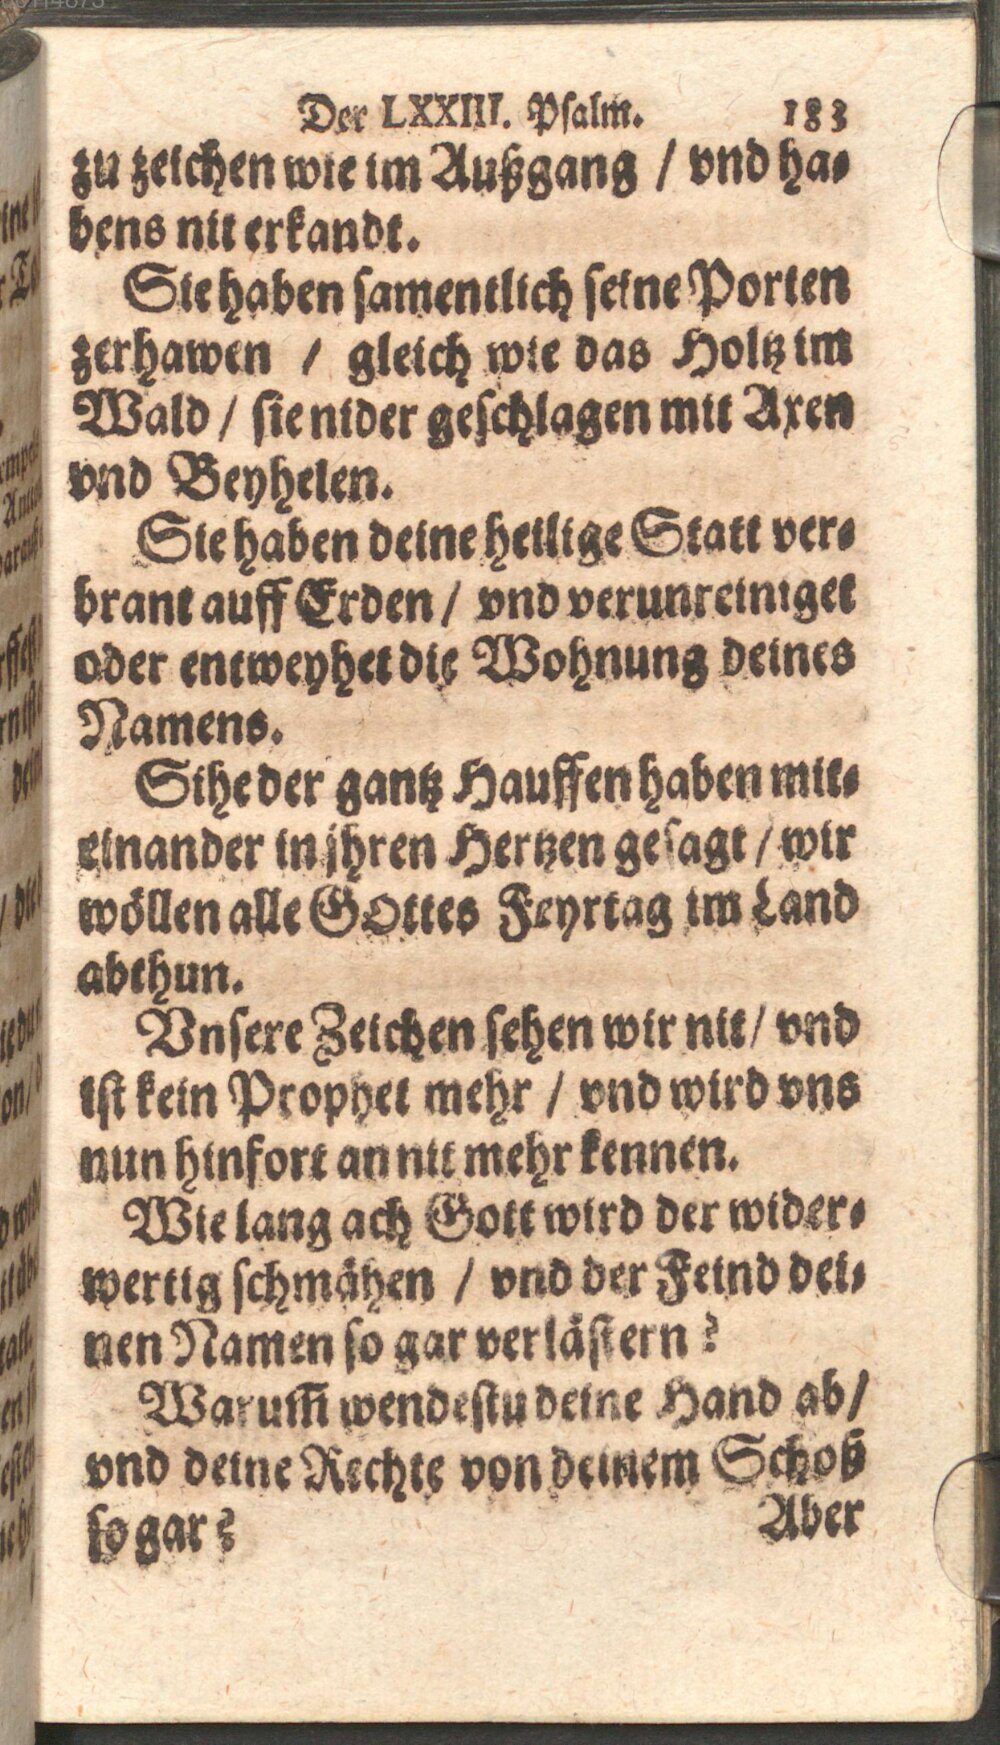 Der LXXIII. Psalm. 183
zu zeichen wie im Außgang / vnd ha-
bens nit erkandt.
Sie haben samentlich seine Porten
zerhawen / gleich wie das Holtz im
Wald / sie nider geschlagen mit Axen
vnd Beyhelen.
Sie haben deine heilige Statt ver-
brant auff Erden / vnd verunreiniget
oder entweyhet die Wohnung deines
Namens.
Sihe der gantz Hauffen haben mit-
einander in jhren Hertzen gesagt / wir
wöllen alle GOttes Feyrtag im Land
abthun.
Vnsere Zeichen sehen wir nit / vnd
ist kein Prophet mehr / vnd wird vns
nun hinfort an nit mehr kennen.
Wie lang ach Gott wird der wider-
wertig schmähen / vnd der Feind dei-
nen Namen so gar verlästern?
Warum̃ wendestu deine Hand ab /
vnd deine Rechte von deinem Schoß
so gar?
Aber